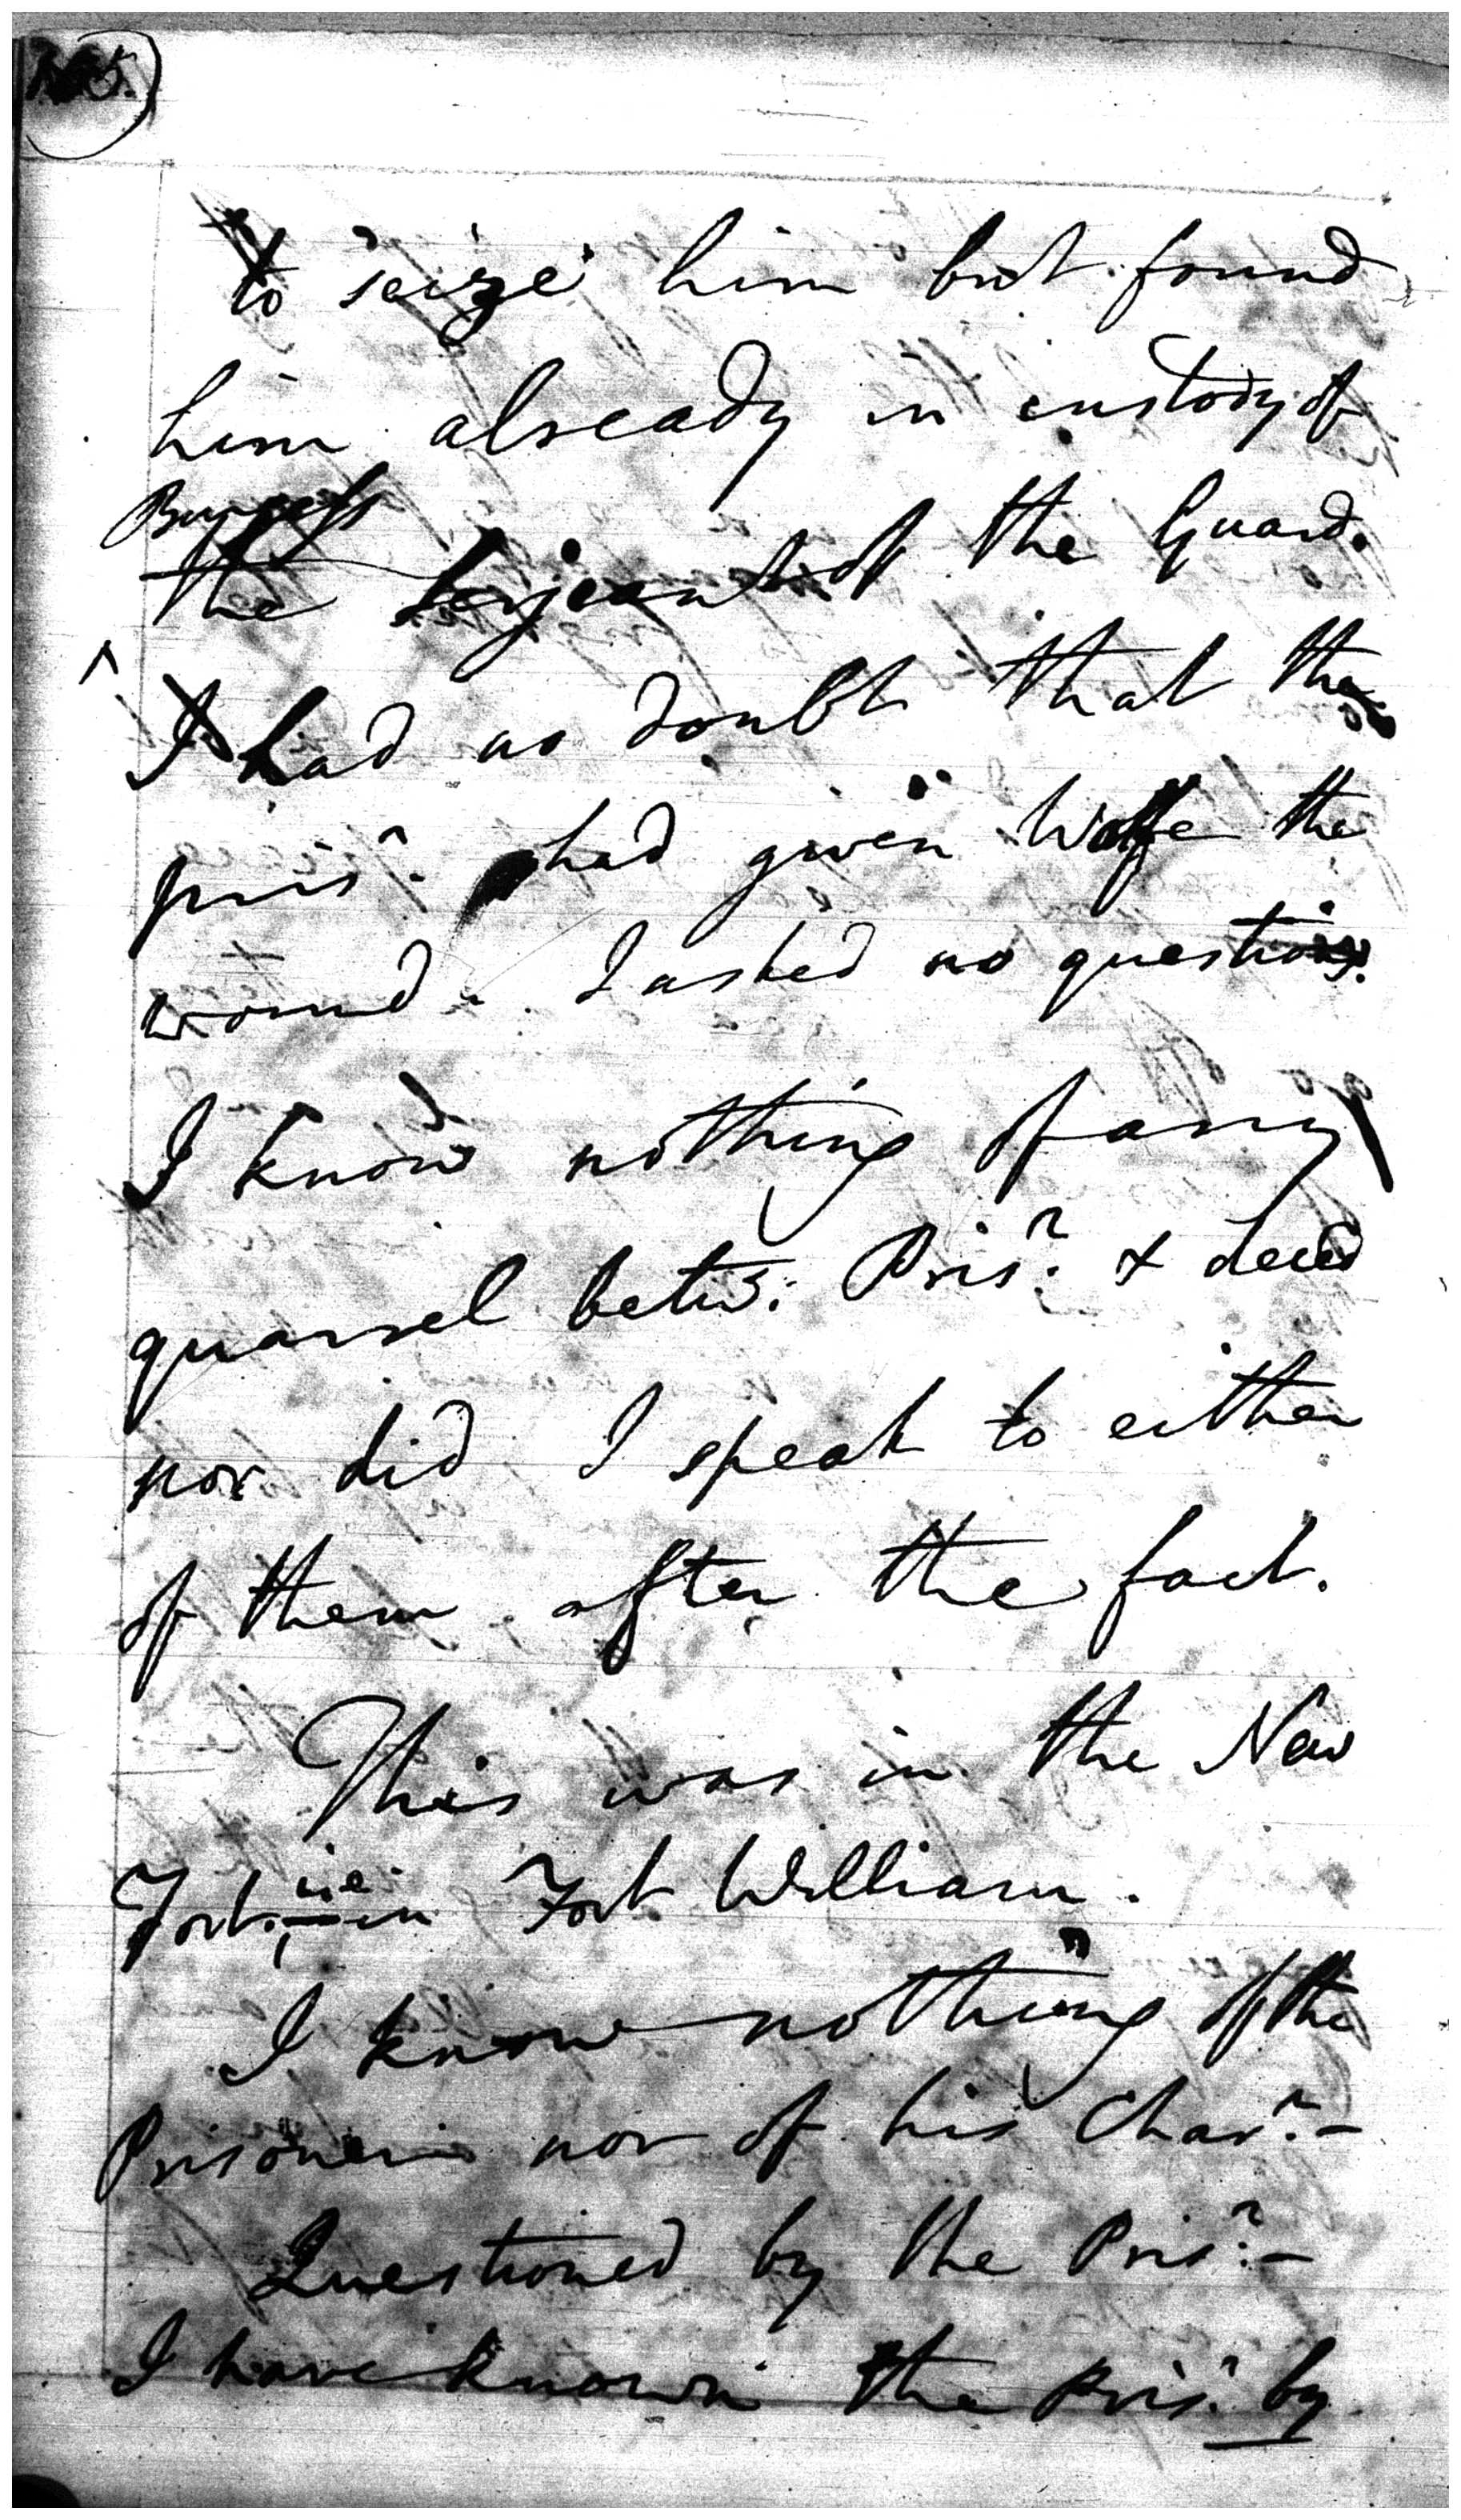 to seize him but found
him already in custody of
Burgess
the Serjeant of the Guard.
I had no doubt that the
prisr. had given Wolfe the
wound. I asked no questions.
I know nothing of any
quarrel betw: Prisr. & deced
nor did I speak to either
of them after the fact.
This was in the New
Fort, ie in Fort William.
I know nothing of the
Prisoner nor of his Charr. -
Questioned by the Prisr. -
I have known the Prisr. by